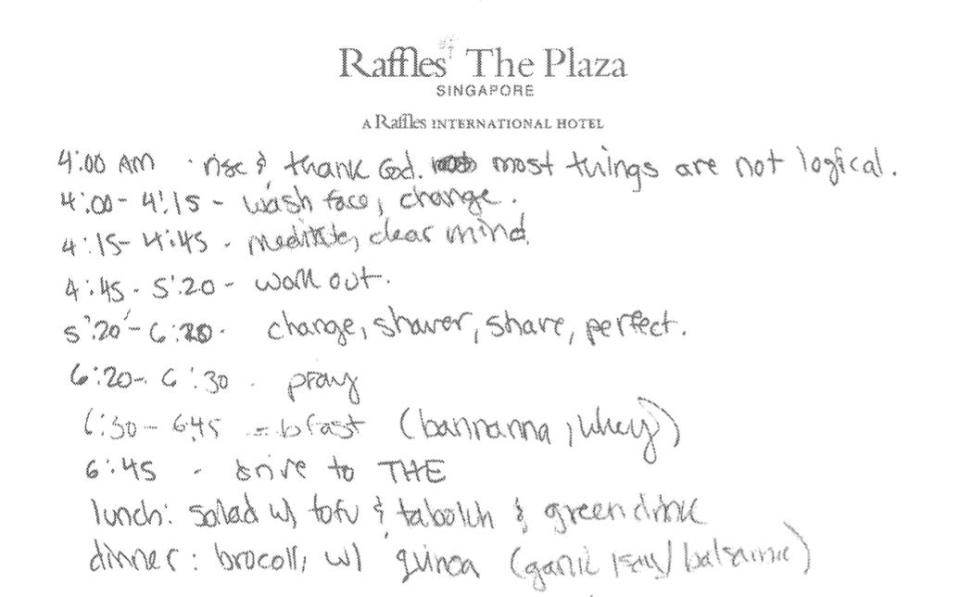 Raffles The Plaza
SINGAPORE
A Raffles INTERNATIONAL HOTEL
4:00 AM · rise & thank God. most things are not logical.
4:00 - 4:15 - wash face, change.
4:15 - 4:45 - meditate, clear mind.
4:45 - 5:20 - work out.
5:20 - 6:20 - change, shower, shave, perfect.
6:20 - 6:30 - pray
6:30 - 6:45 = bfast (bannanna, whey)
6:45 - drive to THE
lunch: salad w/ tofu & tabolih & green drink
dinner: brocolli w/ quinoa (garlic /soy/ balsamic)